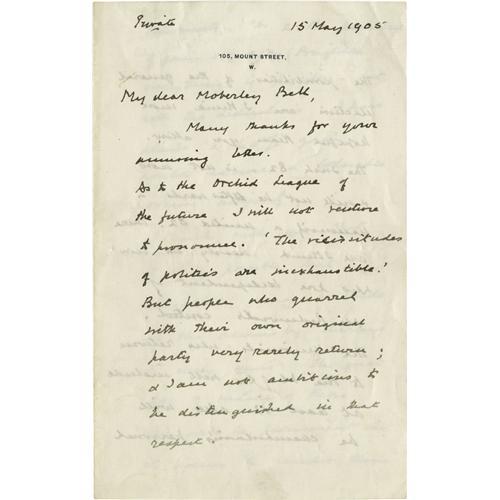 Private
15 May 1905
105, MOUNT STREET,
W.
My dear Moberley Bell,
Many thanks for your
amusing letter.
As to the Orchid League of
the future I will not venture
to pronounce. 'The vicissitudes
of politics are inexhaustible.'
But people who quarrel
with their own original
party very rarely return;
& I am not ambitious to
be distinguished in that
respect.